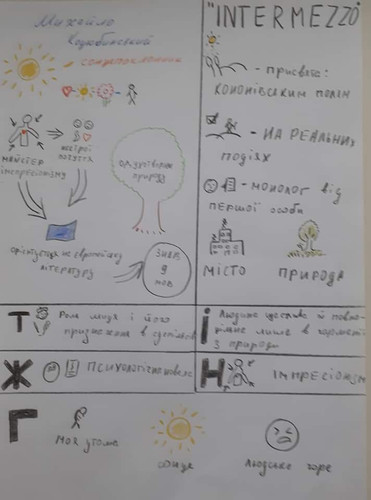 Михайло
Коцюбинський
- сонцепоклонник
майстер
імпресіонізму
гострі
почуття
одухотворив
природу
орієнтувався на європейську
літературу
знав
9
мов
"INTERMEZZO
- присвята:
кононівським полям
- на реальних
подіях
- монолог від
першої особи
місто
природа
Т
Роль митця і його
призначення в суспільст
І
Людина щаслива й повно-
цінна лише в гармонії
з природи
Ж
психологічна новела
Н
імпресіонізм
Г
Моя утома
сонце
людське горе